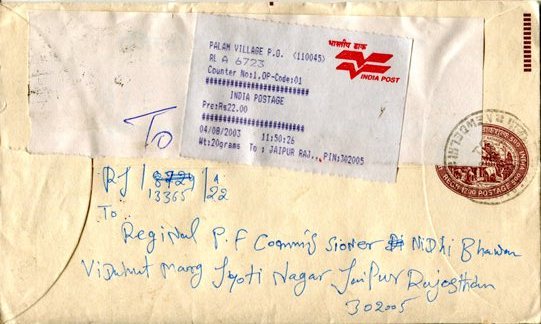 PALAM VILLAGE P.O. (110045)
RL A 6723
Counter No:1,OP-Code:01
INDIA POSTAGE
Pre:Rs22.00
04/08/2003 11:50:26
Wt:20grams To : JAIPUR RAJ., PIN:302005
भारतीय डाक
INDIA POST
To
RJ / 8729 / A
13365 / 22
To
Reginal P.F Commissioner Nidhi Bhawan
Vidhut Marg Jyoti Nagar Jaipur Rajasthan
302005